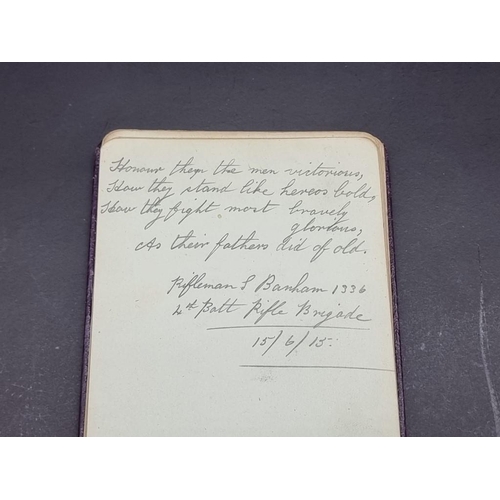 Honour them the men victorious,
How they stand like heroes bold,
How they fight most bravely
glorious,
As their fathers did of old.
Rifleman S Banham 1336
4th Batt Rifle Brigade
15/6/15.